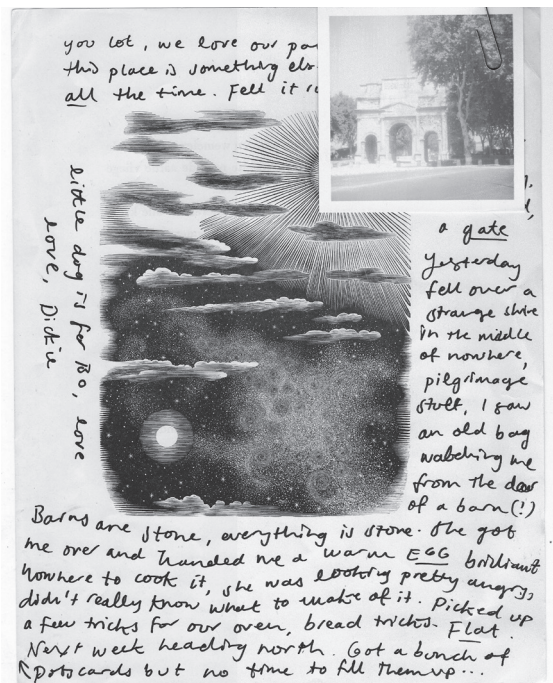 you lot, we love our
this place is something
all the time. Fell it
a gate
Yesterday
fell over a
strange shrine
in the middle
of nowhere,
pilgrimage
stuff, I saw
an old bag
watching me
from the door
of a barn (!)
Barns are stone, everything is stone. She got
me over and handed me a warm EGG brilliant
nowhere to cook it, she was looking pretty angry,
didn't really know what to make of it. Picked up
a few tricks for our oven, bread tricks. Flat.
Next week heading north. Got a bunch of
postcards but no time to fill them up...
little dog is for Bo, love
love, Dickie